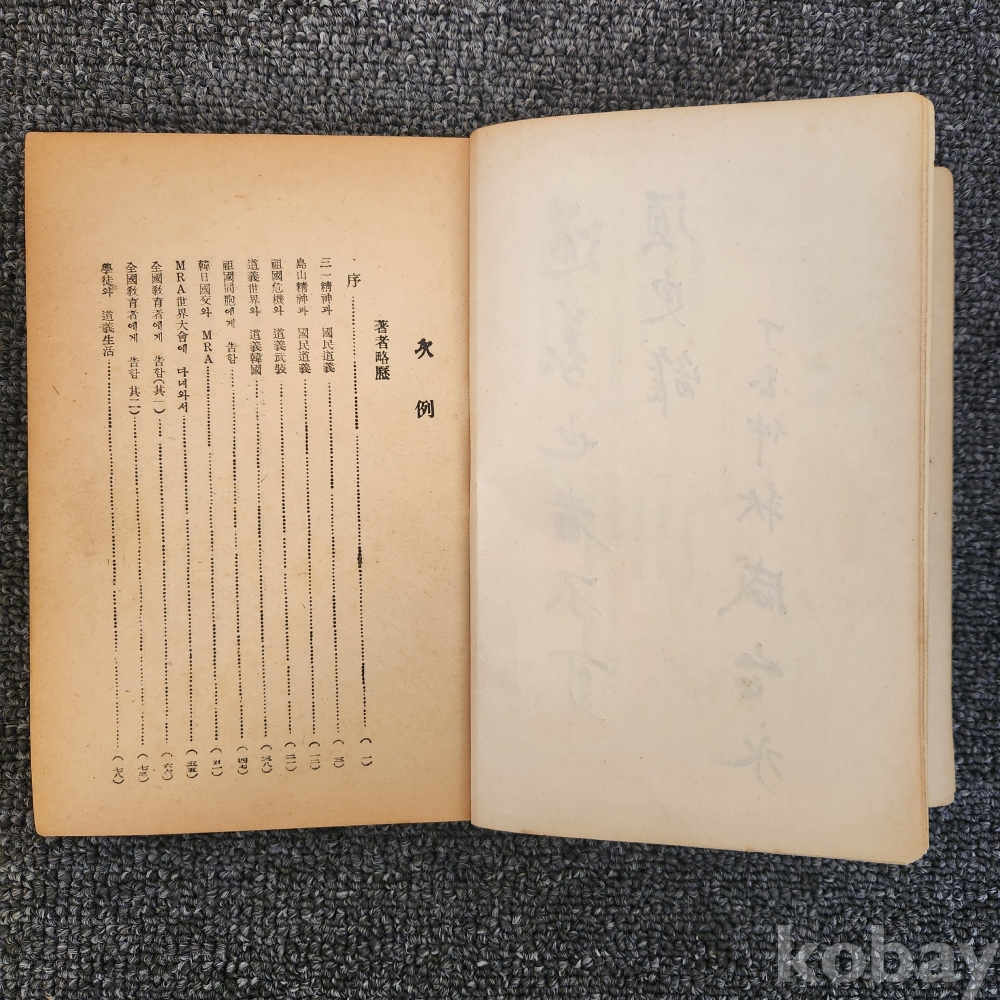 次例
著者略歷
序 (一)
三一精神과 國民道義 (三)
島山精神과 國民道義 (一三)
祖國危機와 道義武裝 (二一)
道義世界와 道義韓國 (三八)
祖國同胞에게 告함 (四七)
韓日國交와 MRA (五一)
MRA世界大會에 다녀와서 (五五)
全國敎育者에게 告함(其一) (六七)
全國敎育者에게 告함(其二) (七三)
學徒와 道義生活 (七八)
kobay